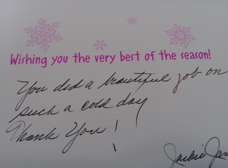 Wishing you the very best of the season!
You did a beautiful job on
such a cold day
Thank You!